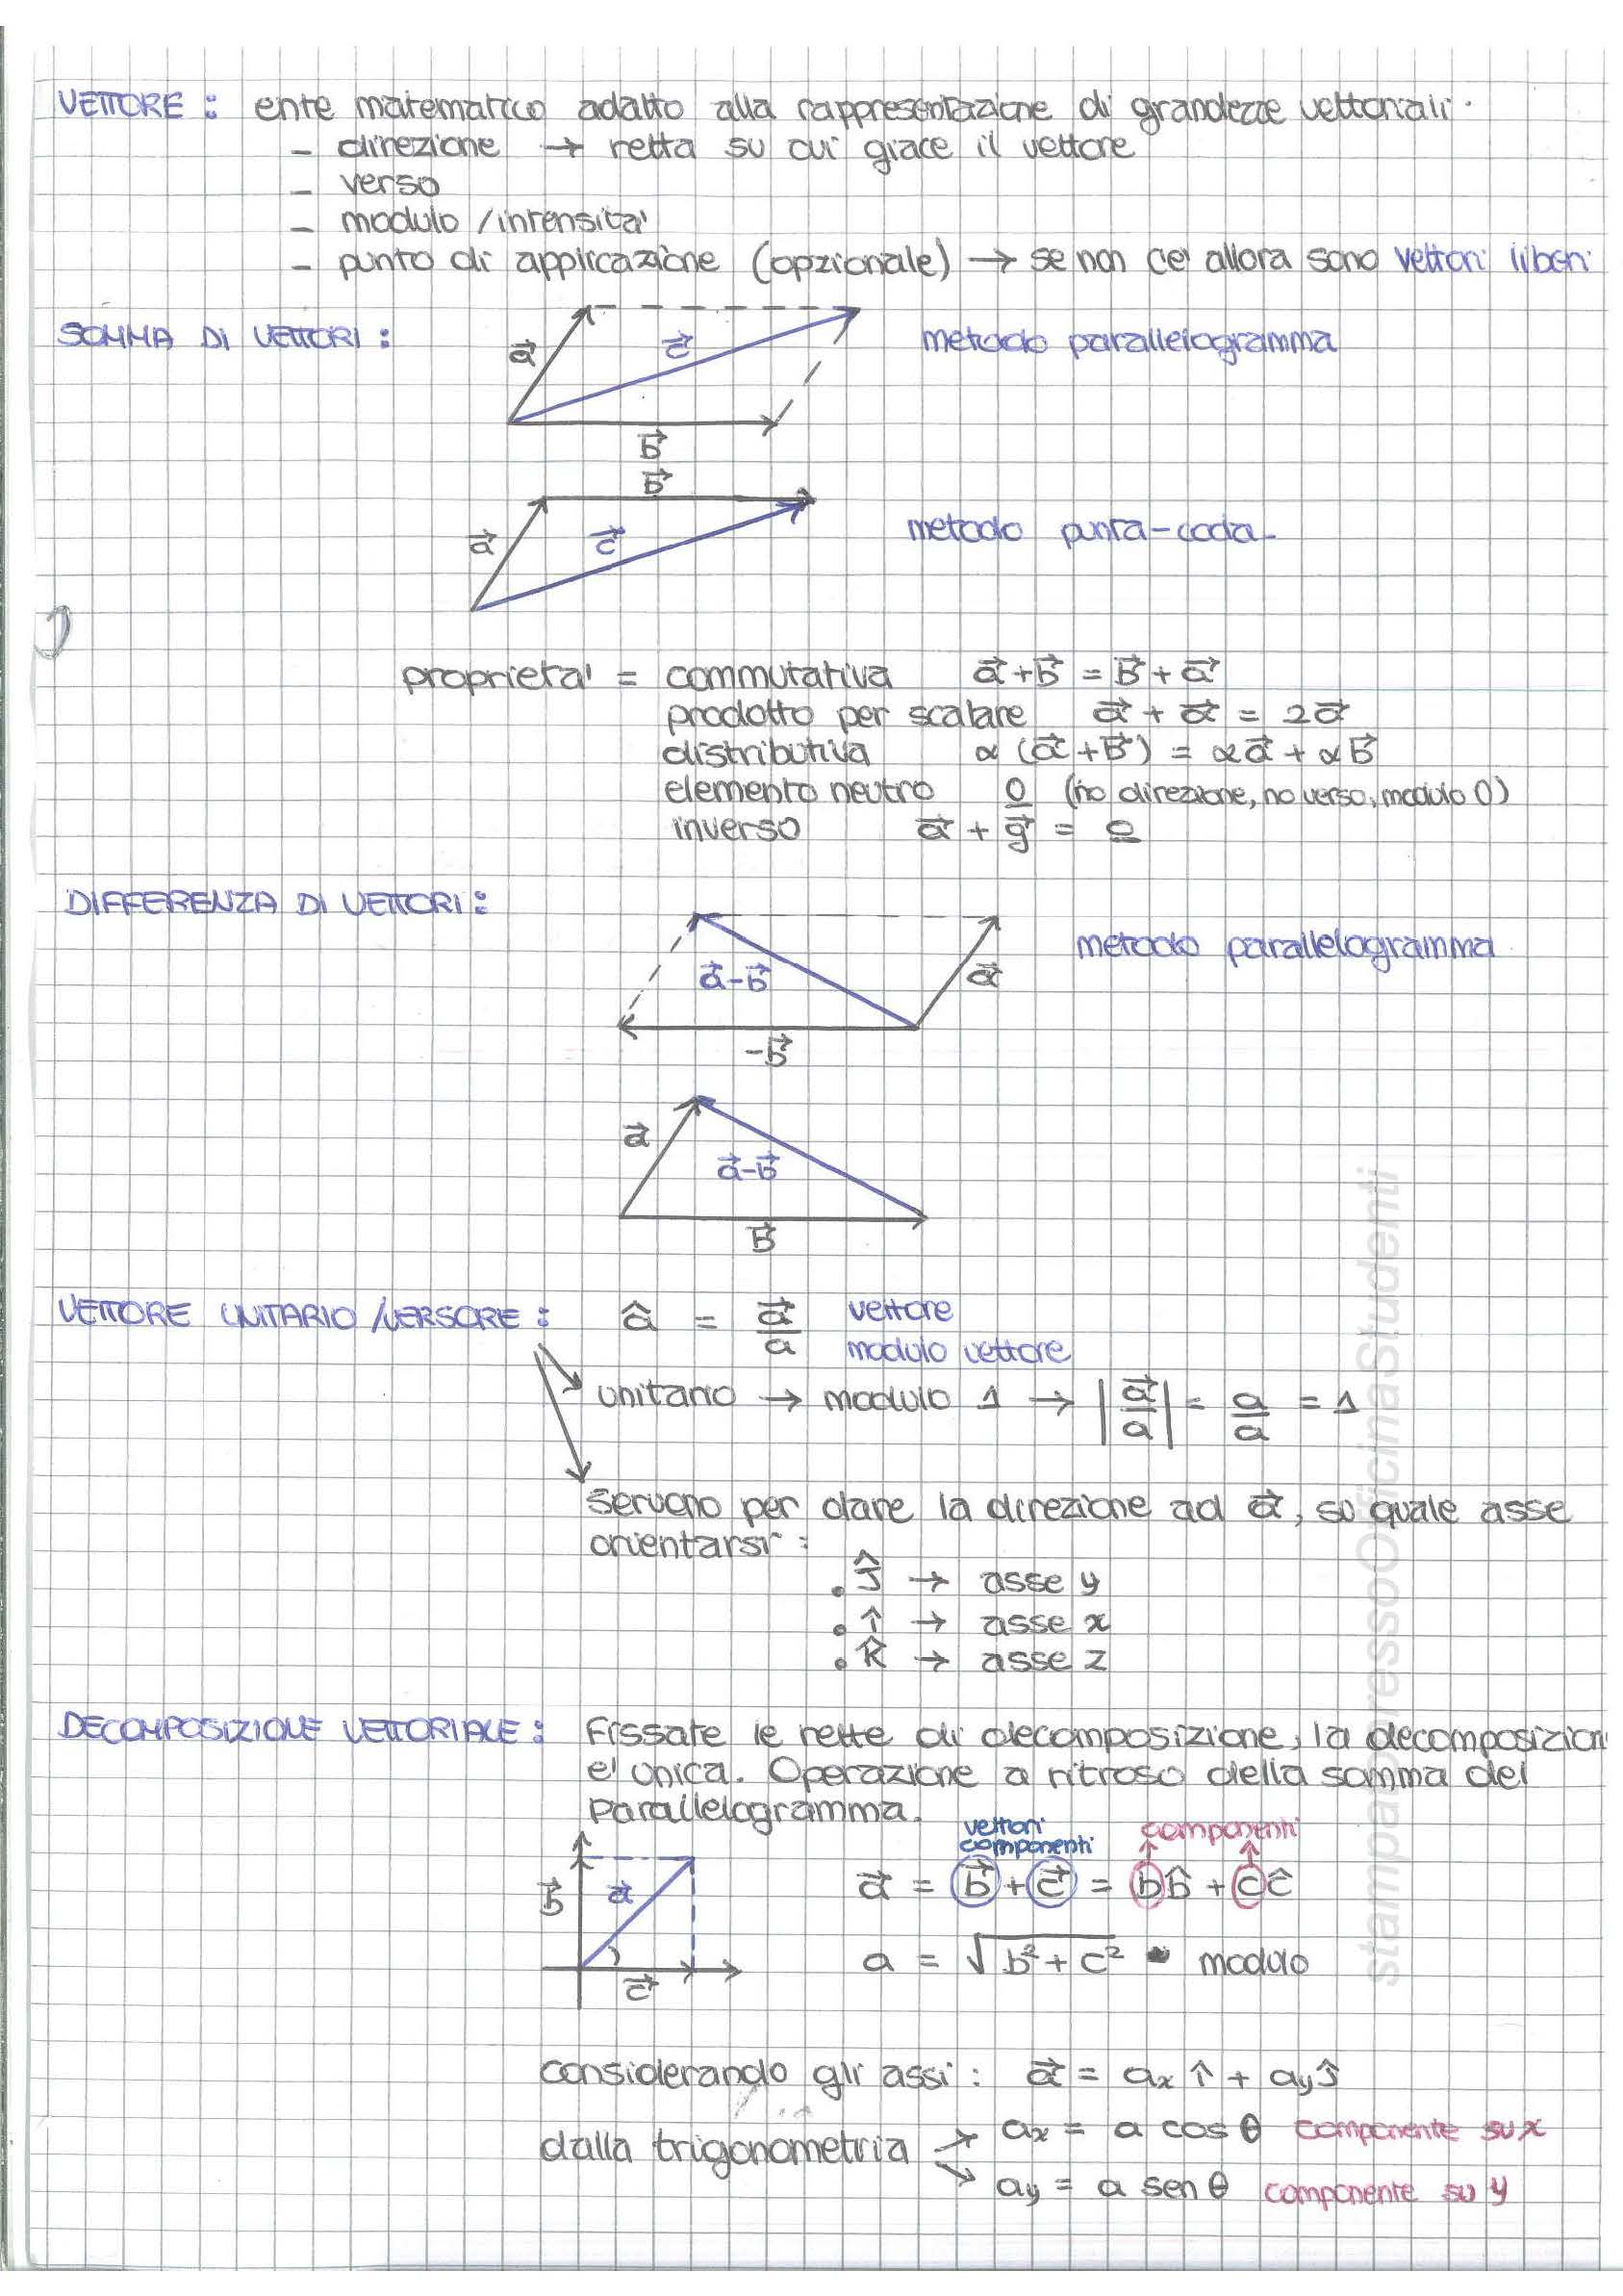 VETTORE : ente matematico adatto alla rappresentazione di grandezze vettoriali.
- direzione → retta su cui giace il vettore
- verso
- modulo /intensita'
- punto di applicazione (opzionale) → se non ce' allora sono vettori liberi
SOMMA DI VETTORI :
a⃗ c⃗ metodo parallelogramma
b⃗
b⃗
a⃗ c⃗ metodo punta-coda
proprieta' = commutativa a⃗ + b⃗ = b⃗ + a⃗
prodotto per scalare a⃗ + a⃗ = 2a⃗
distributiva α (a⃗ + b⃗) = αa⃗ + αb⃗
elemento neutro 0 (no direzione, no verso, modulo 0)
inverso a⃗ + g⃗ = 0
DIFFERENZA DI VETTORI :
a⃗-b⃗ a⃗ metodo parallelogramma
-b⃗
a⃗
a⃗-b⃗
b⃗
VETTORE UNITARIO /VERSORE : â = a⃗/a vettore
modulo vettore
unitario → modulo 1 → |a⃗/a| = a/a = 1
Servono per dare la direzione ad a⃗, su quale asse
orientarsi :
. ĵ → asse y
. î → asse x
. k̂ → asse z
DECOMPOSIZIONE VETTORIALE : Fissate le rette di decomposizione, la decomposizion
e' unica. Operazione a ritroso della somma del
parallelogramma.
vettori componenti
componenti
b⃗ a⃗ a⃗ = b⃗ + c⃗ = b b̂ + c ĉ
c⃗ a = √b² + c² modulo
considerando gli assi : a⃗ = ax î + ay ĵ
dalla trigonometria → ax = a cos θ componente su x
→ ay = a sen θ componente su y
stampatopressoOfficinaStudenti